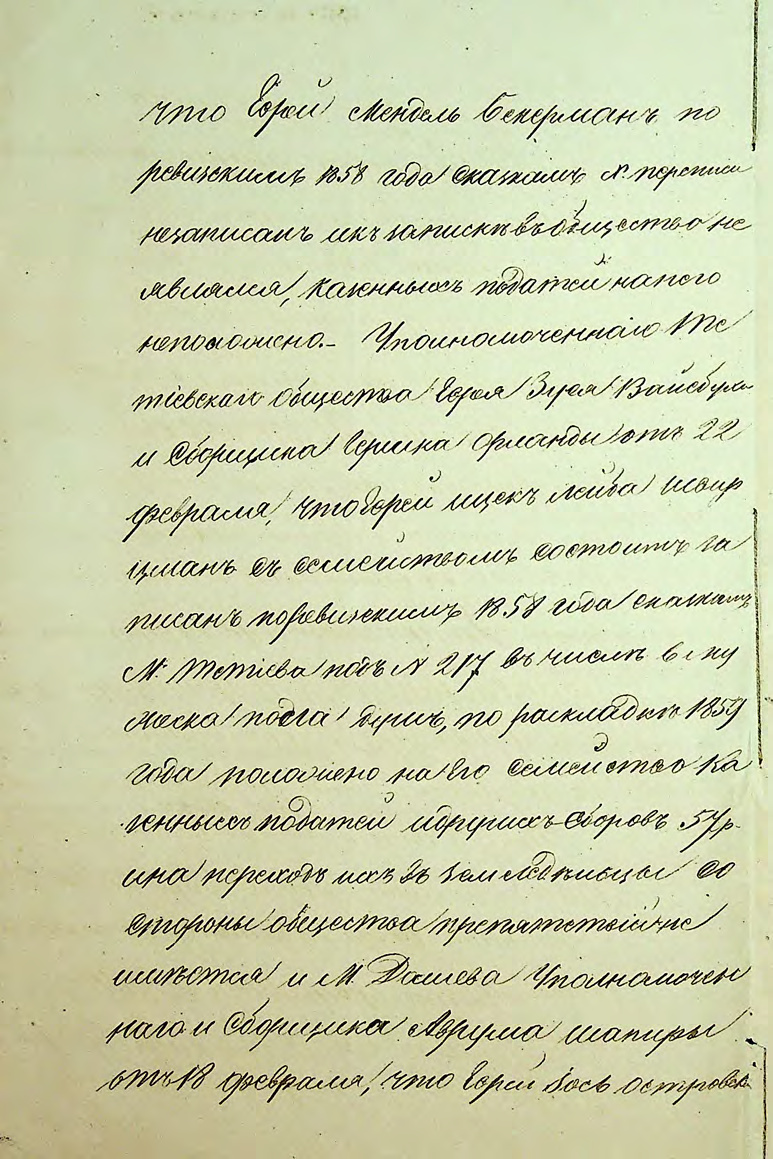 что Еврей Мендель Бекерманъ, по
ревизскимъ 1858 года сказкамъ М.
незаписанъ и къ запискѣ въ общество не
являлся, казенныхъ податей на него
неположено.- Уполномоченнаго Те
тіевскаго общества Еврея Зуся Вайсбу
и Сборщика Гершка Орланды отъ 22
февраля, что Еврей Ицекъ Лейба
цманъ съ семействомъ состоитъ за
писанъ поревизскимъ 1858 года сказкамъ
М. Тетіева подъ N 217 въ числѣ 6 му
жеска пола душъ, по раскладкѣ 1859
года положено на его семейство Ка
зенныхъ податей и другихъ Сборовъ 57 р.
и на переходъ ихъ въ Земледѣльцы со
стороны общества препятствій не
имѣется и М. Дашева Уполномочен
наго и Сборщика Аврума Шапиры
отъ 18 февраля, что Еврей Іось Островск